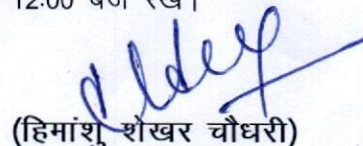 12:00 बजे रखें।
(हिमांशु शेखर चौधरी)